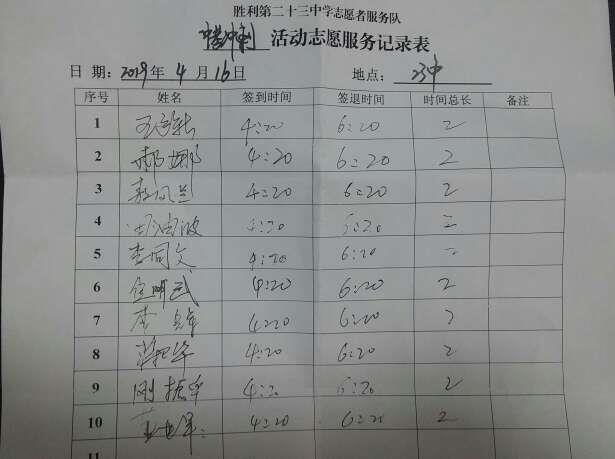 胜利第二十三中学志愿者服务队
中考冲刺 活动志愿服务记录表
日 期: 2019年 4 月 16日 地点: 23中
序号 姓名 签到时间 签退时间 时间总长 备注
1 4:20 6:20 2
2 郝娜 4:20 6:20 2
3 4:20 6:20 2
4 4:20 6:20 二
5 李同文 4:20 6:20 二
6 4:20 6:20 2
7 李 4:20 6:20 2
8 4:20 6:20 2
9 刚振华 4:20 6:20 2
10 4:20 6:20 2
11